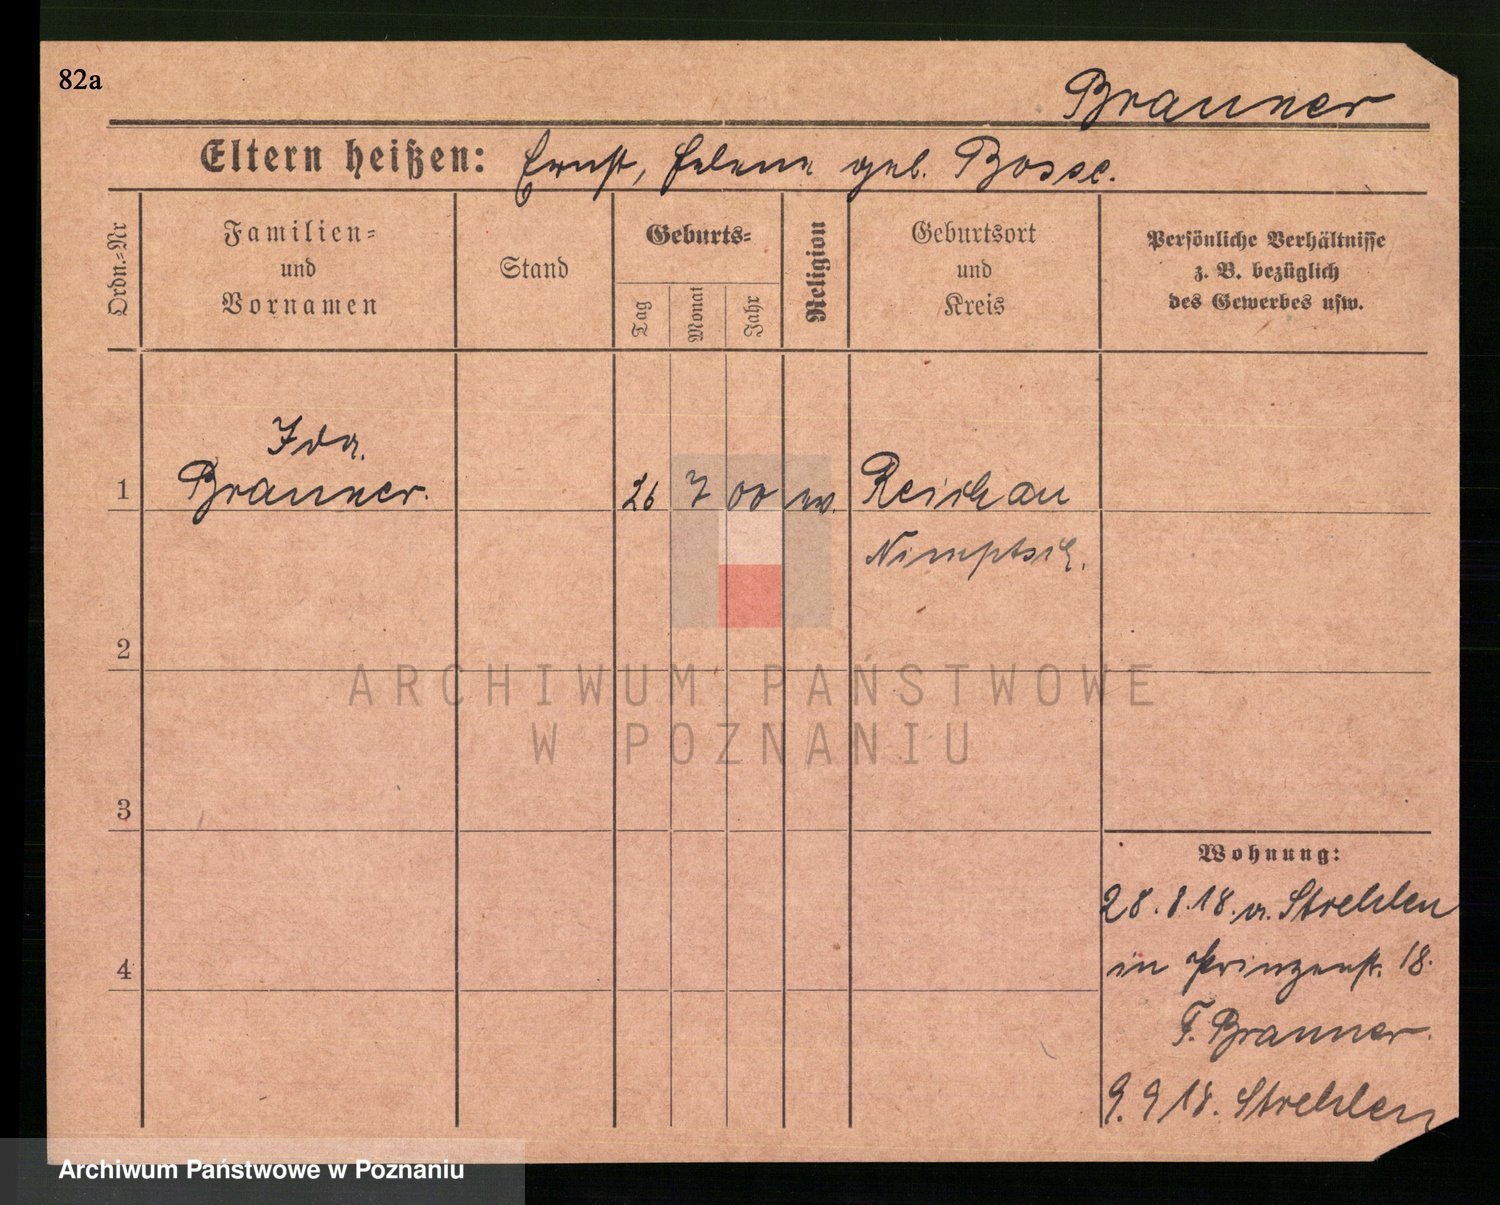 82a
Branner
Eltern heißen: Ernst, Helene geb. Bosse.
Ordn.-Nr
Familien-
und
Vornamen
Stand
Geburts-
Tag
Monat
Jahr
Religion
Geburtsort
und
Kreis
Persönliche Verhältnisse
z. B. bezüglich
des Gewerbes usw.
Ida
1 Branner. 26 7 00 ev. Reichau
Nimptsch.
2
ARCHIWUM PAŃSTWOWE
W POZNANIU
3
Wohnung:
28. 8. 18. a. Strehlen
4
in Prinzenstr. 18.
F. Branner.
9. 9 18. Strehlen
Archiwum Państwowe w Poznaniu